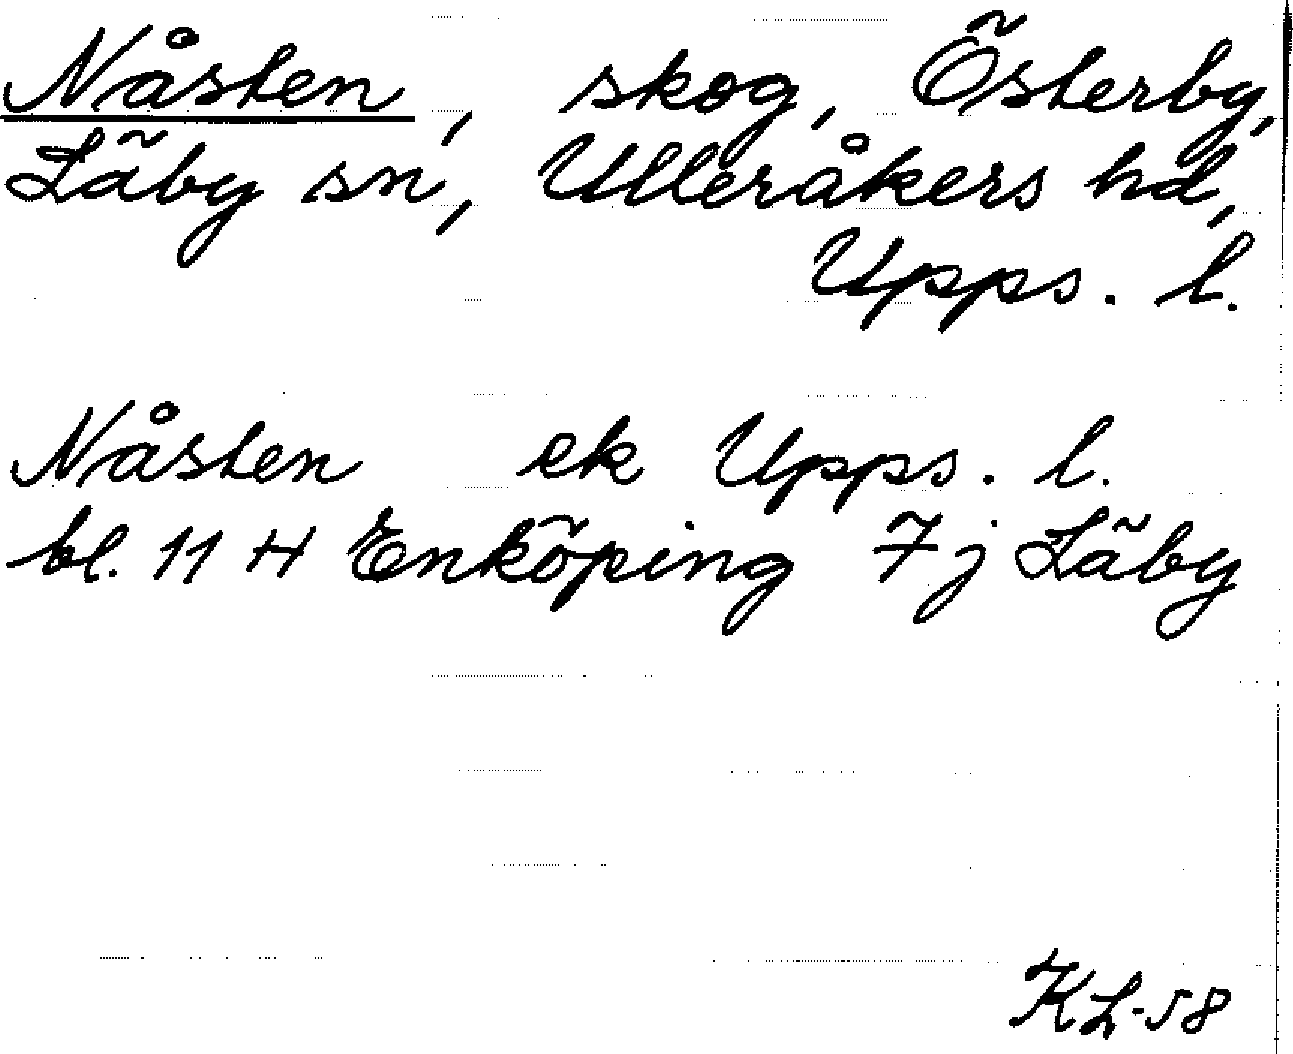 Nåsten, skog, Österby,
Läby sn, Ulleråkers hd,
Upps. l.
Nåsten ek Upps. l.
bl. 11 H Enköping 7j Läby
KL-58